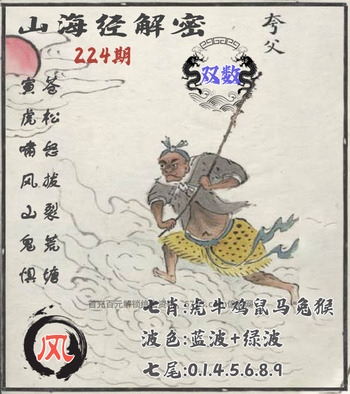 山海经解密
224期
夸父
双数
寅虎啸风山鬼惧
答松怒拔裂荒塘
风
七肖:虎牛鸡鼠马兔猴
波色:蓝波+绿波
七尾:0.1.4.5.6.8.9